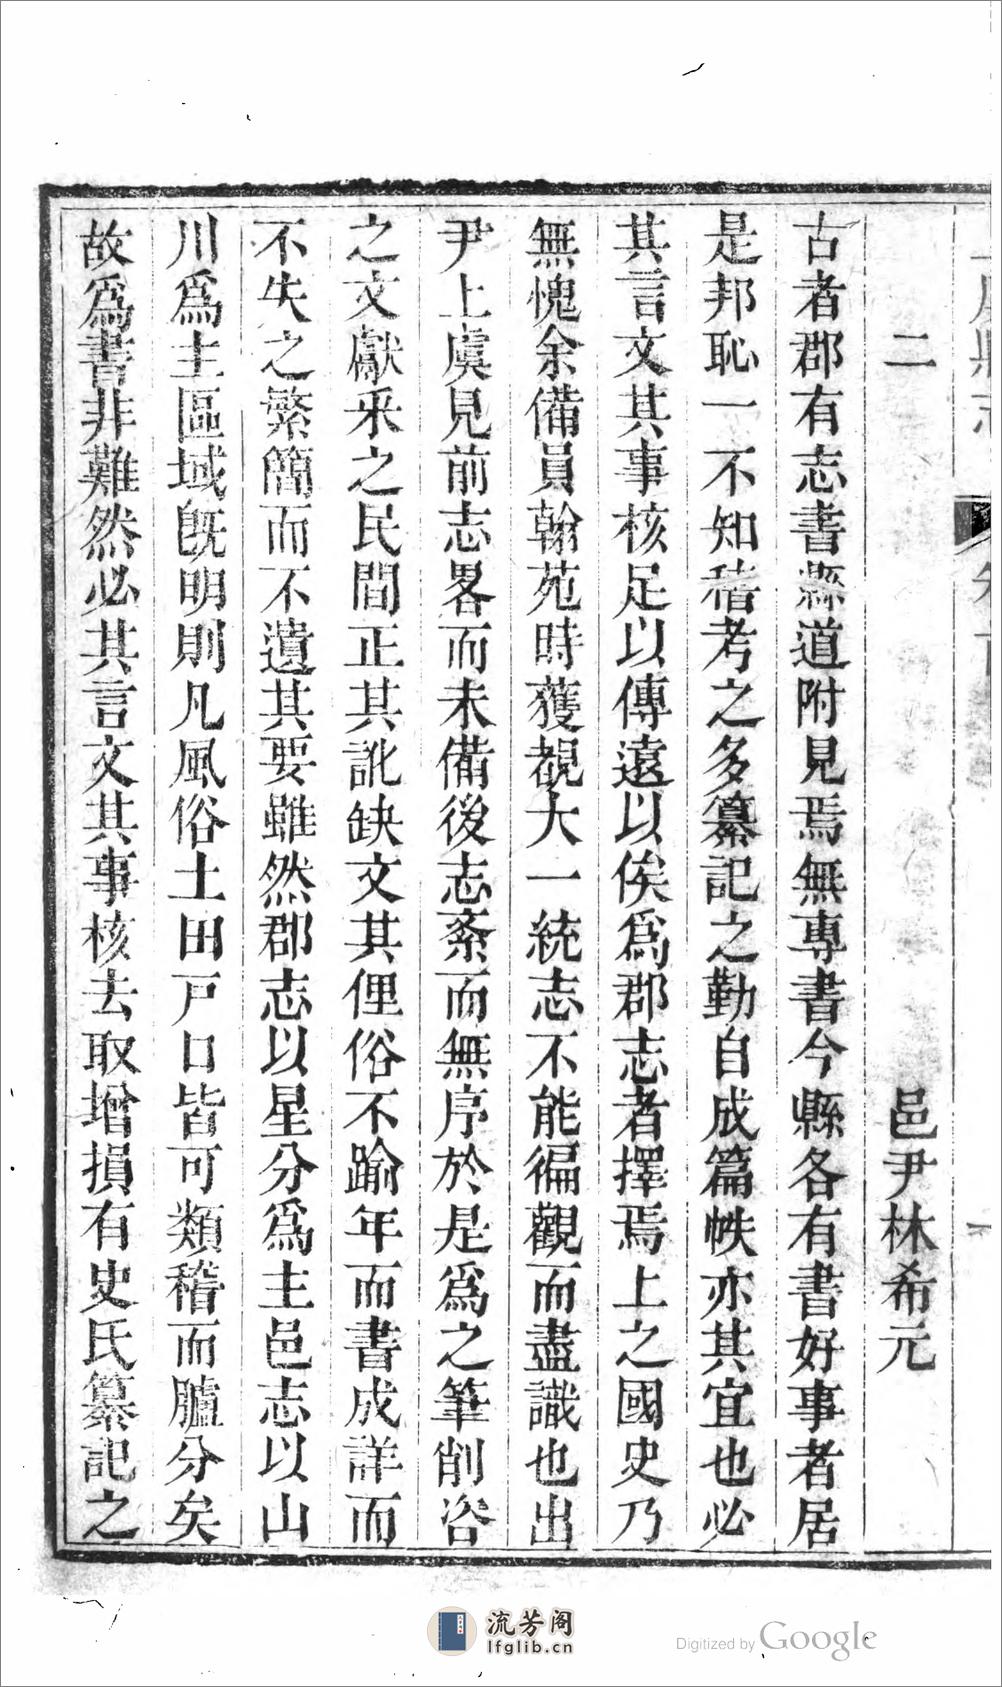 二　邑尹林希元
古者郡有志書縣道附見焉無專書今縣各有書好事者居
是邦恥一不知稽考之多纂記之勤自成篇帙亦其宜也必
其言文其事核足以傳遠以俟爲郡志者擇焉上之國史乃
無愧余備員翰苑時獲覩大一統志不能徧觀而盡識也出
尹上虞見前志畧而未備後志紊而無序於是爲之筆削咨
之文獻采之民間正其訛缺文其俚俗不踰年而書成詳而
不失之繁簡而不遺其要雖然郡志以星分爲主邑志以山
川爲主區域旣明則凡風俗土田戸口皆可類稽而臚分矣
故爲書非難然必其言文其事核去取增損有史氏纂記之
流芳阁
lfglib.cn
Digitized by Google